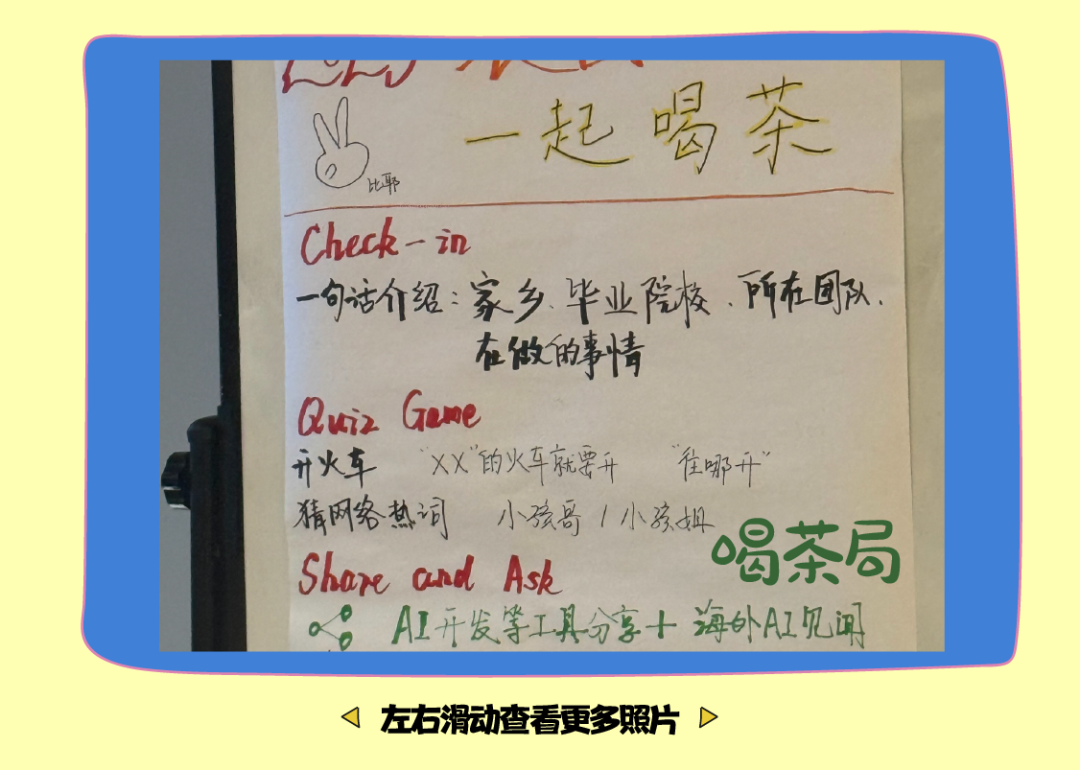 一起喝茶
比耶
Check-in
一句话介绍：家乡、毕业院校、所在团队、
在做的事情
Quiz Game
开火车 “XX”的火车就要开 “往哪开”
猜网络热词 小孩哥 / 小孩姐
喝茶局
Share and Ask
AI开发等工具分享+海外AI见闻
左右滑动查看更多照片